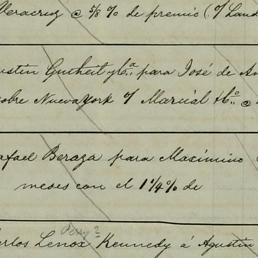 Veracruz @ 5/8 % de premio (
ustin Gutheil y Ca. para José de A
obre Nueva York
afael Beraza para Maximino
meses con el 1 1/4 % de
rlos Lenox Kennedy á Agustin